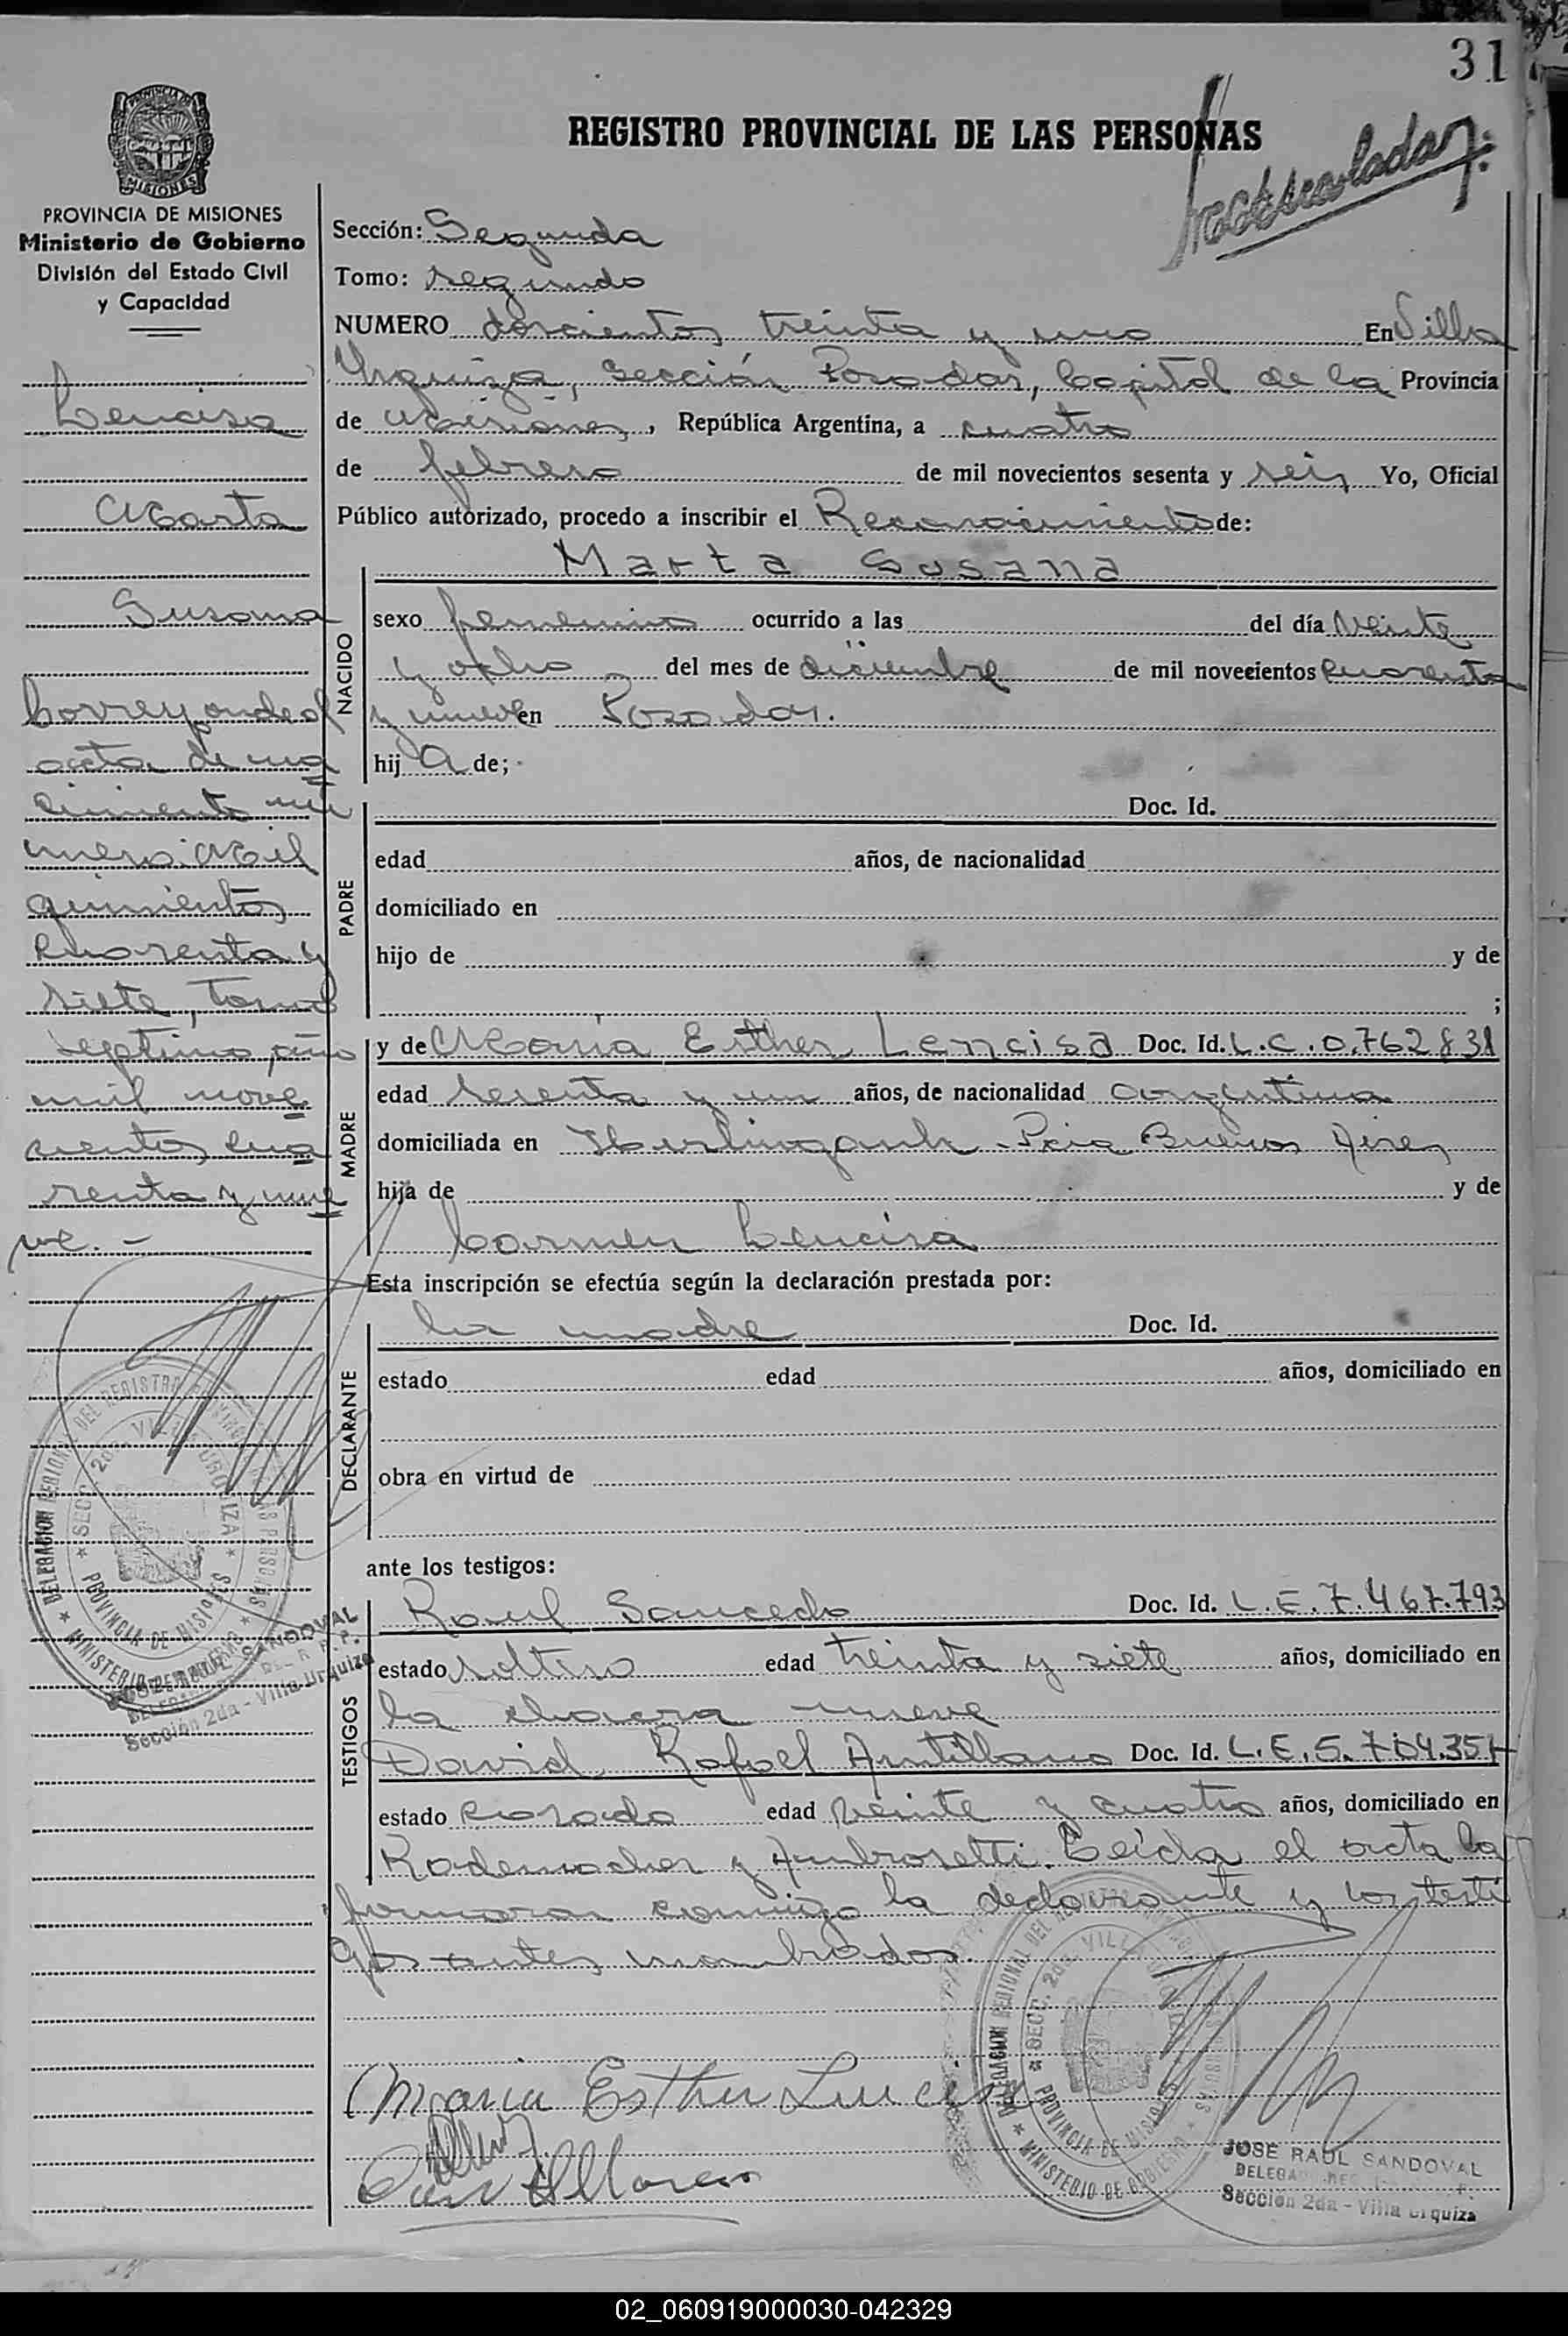 31
REGISTRO PROVINCIAL DE LAS PERSONAS
PROVINCIA DE MISIONES
Ministerio de Gobierno
División del Estado Civil
y Capacidad
Lencisa
Marta
Susana
Corresponde al
acta de na
cimiento nú
mero: Mil
quinientos
cuarenta y
siete, Tomo
septimo, año
mil nove
cientos cua
renta y nue
ve. -
Sección: Segunda
Tomo: segundo
NUMERO doscientos treinta y uno En Villa
Urquiza, Sección Posadas, Capital de la Provincia
de Misiones, República Argentina, a cuatro
de febrero de mil novecientos sesenta y seis Yo, Oficial
Público autorizado, procedo a inscribir el Reconocimiento de:
Marta Susana
NACIDO
sexo femenino ocurrido a las del día veinte
y ocho del mes de diciembre de mil novecientos cuarenta
y nueve en Posadas.
hij a de;
PADRE
Doc. Id.
edad años, de nacionalidad
domiciliado en
hijo de y de
;
MADRE
y de María Esther Lencisa Doc. Id. L.C.0.762831
edad sesenta y un años, de nacionalidad argentina
domiciliada en Hurlinganh - Pcia Buenos Aires
hija de y de
Carmen Lencisa
Esta inscripción se efectúa según la declaración prestada por:
DECLARANTE
la madre Doc. Id.
estado edad años, domiciliado en
obra en virtud de
ante los testigos:
TESTIGOS
Raul Saucedo Doc. Id. L.E.7.467.793
estado soltero edad treinta y siete años, domiciliado en
la chacra nueve
David Rafael Antillano Doc. Id. L.E.5.704.351
estado casado edad veinte y cuatro años, domiciliado en
Rademacher y Ambrosetti. Leída el acta la
firmaron conmigo la declarante y los testi
gos antes nombrados.
Maria Esther Lencisa
DELEGACION REGIONAL DEL REGISTRO PROVINCIAL DE LAS PERSONAS
SECC. 2da. VILLA URQUIZA
PROVINCIA DE MISIONES
MINISTERIO DE GOBIERNO
JOSE RAUL SANDOVAL
Sección 2da - Villa Urquiza
JOSE RAUL SANDOVAL
Sección 2da - Villa Urquiza
02_060919000030-042329